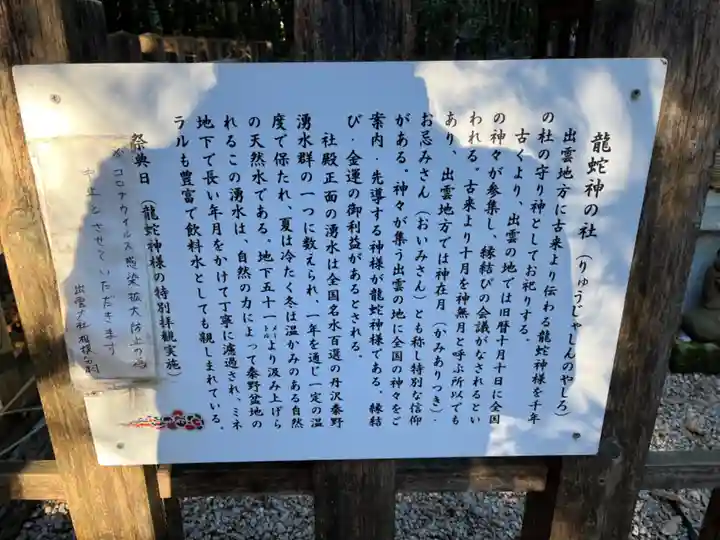 龍蛇神の社 (りゅうじゃしんのやしろ)
出雲地方に古来より伝わる龍蛇神様を千年
の社の守り神としてお祀りする。
古くより、出雲の地では旧暦十月十日に全国
の神々が参集し、縁結びの会議がなされるとい
われる。古来より十月を神無月と呼ぶ所以でも
あり、出雲地方では神在月(かみありつき)・
お忌みさん(おいみさん)とも称し特別な信仰
がある。神々が集う出雲の地に全国の神々をご
案内・先導する神様が龍蛇神様である。縁結
び・金運の御利益があるとされる。
社殿正面の湧水は全国名水百選の丹沢秦野
湧水群の一つに数えられ、一年を通じ一定の温
度で保たれ、夏は冷たく冬は温かみのある自然
の天然水である。地下五十一㍍より汲み上げら
れるこの湧水は、自然の力によって秦野盆地の
地下で長い年月をかけて丁寧に濾過され、ミネ
ラルも豊富で飲料水としても親しまれている。
祭典日 (龍蛇神様の特別拝観実施)
※コロナウイルス感染拡大防止の為
中止とさせていただきます
出雲大社相模分祠